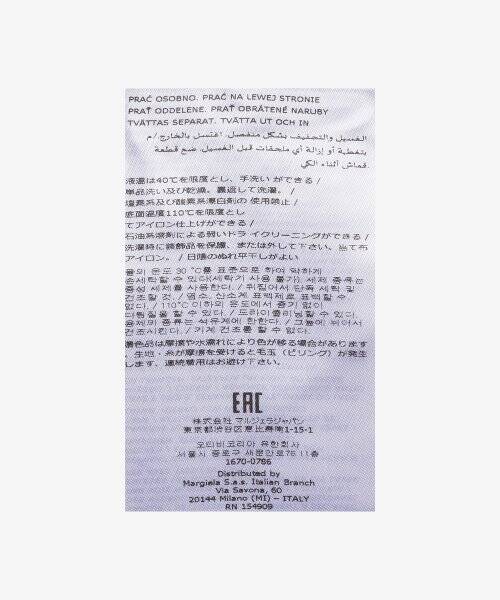 PRAĆ OSOBNO. PRAĆ NA LEWEJ STRONIE
PRAŤ ODDELENE. PRAŤ OBRÁTENÉ NARUBY
TVÄTTAS SEPARAT. TVÄTTA UT OCH IN
الغسيل والتجفيف بشكل منفصل. اغتسل بالخارج /م
بتغطية أو إزالة أي ملحقات قبل الغسيل. ضع قطعة
قماش أثناء الكي.
液温は40℃を限度とし、手洗いができる /
単品洗い及び乾燥。裏返して洗濯。 /
塩素系及び酸素系漂白剤の使用禁止 /
底面温度110℃を限度とし
てアイロン仕上げができる /
石油系溶剤による弱いドライクリーニングができる /
洗濯時に装飾品を保護、または外して下さい。当て布
アイロン。 / 日陰のぬれ平干しがよい
물의 온도 30 ℃를 표준으로 하여 약하게
손세탁할 수 있다(세탁기 사용 불가). 세제 종류는
중성 세제를 사용한다. / 뒤집어서 단독 세탁 및
건조할 것. / 염소, 산소계 표백제로 표백할 수
없다. / 110℃ 이하의 온도에서 증기 없이
다림질을 할 수 있다. / 드라이클리닝할 수 있다.
용제의 종류는 석유계에 한한다. / 그늘에 뉘어서
건조시킨다. / 기계 건조를 할 수 없다.
濃色品は摩擦や水濡れにより色が移る場合があります
。生地・糸が摩擦を受けると毛玉（ピリング）が発生
します。連続着用はお避け下さい。
EAC
株式会社 マルジェラジャパン
東京都渋谷区恵比寿南1-15-1
오티비코리아 유한회사
서울시 종로구 새문안로76 11층
1670-0786
Distributed by
Margiela S.a.s. Italian Branch
Via Savona, 60
20144 Milano (MI) – ITALY
RN 154909